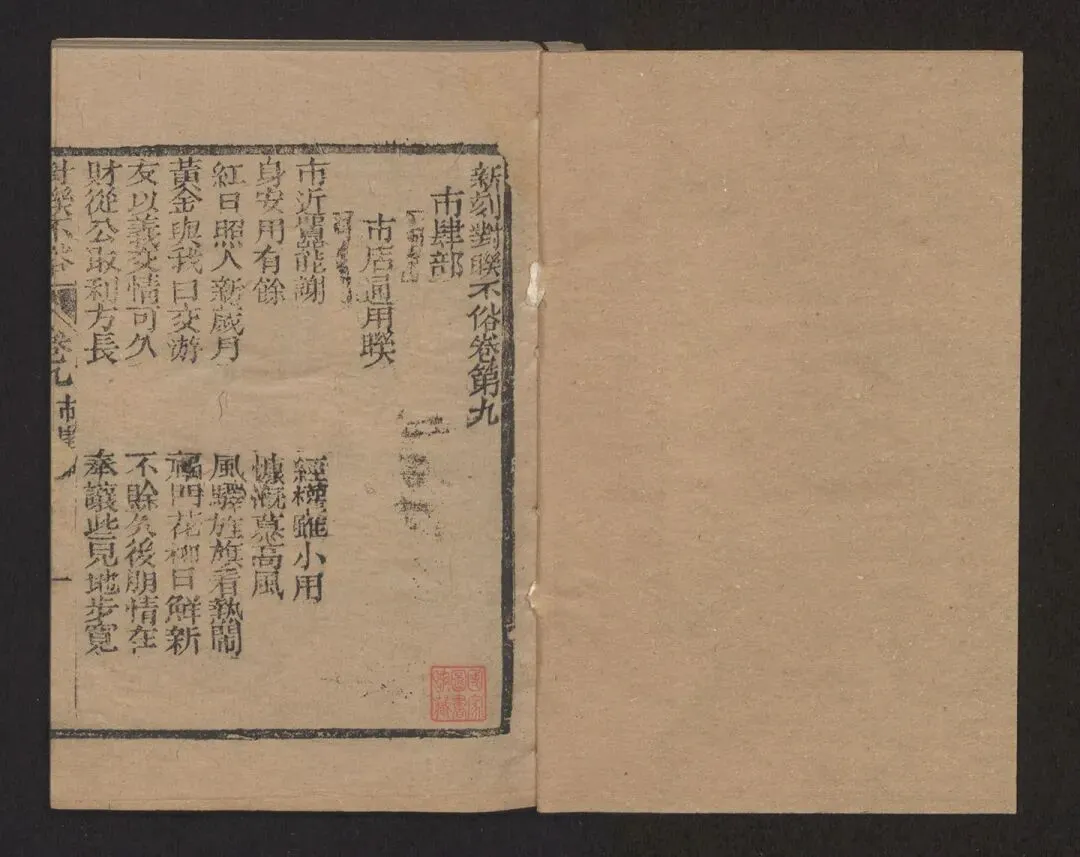 新刻對聯不俗卷第九
市肆部
市店通用聯
市近
小用
身安用有餘
慷慨慕高風
紅日照人新歲月
風驛旌旗看熱鬧
黃金與我曰交游
門花柳日鮮新
友以義交情可久
不賒久後朋情在
財從公取利方長
奉讓些見地步寬
對聯不俗
卷九
市肆
一